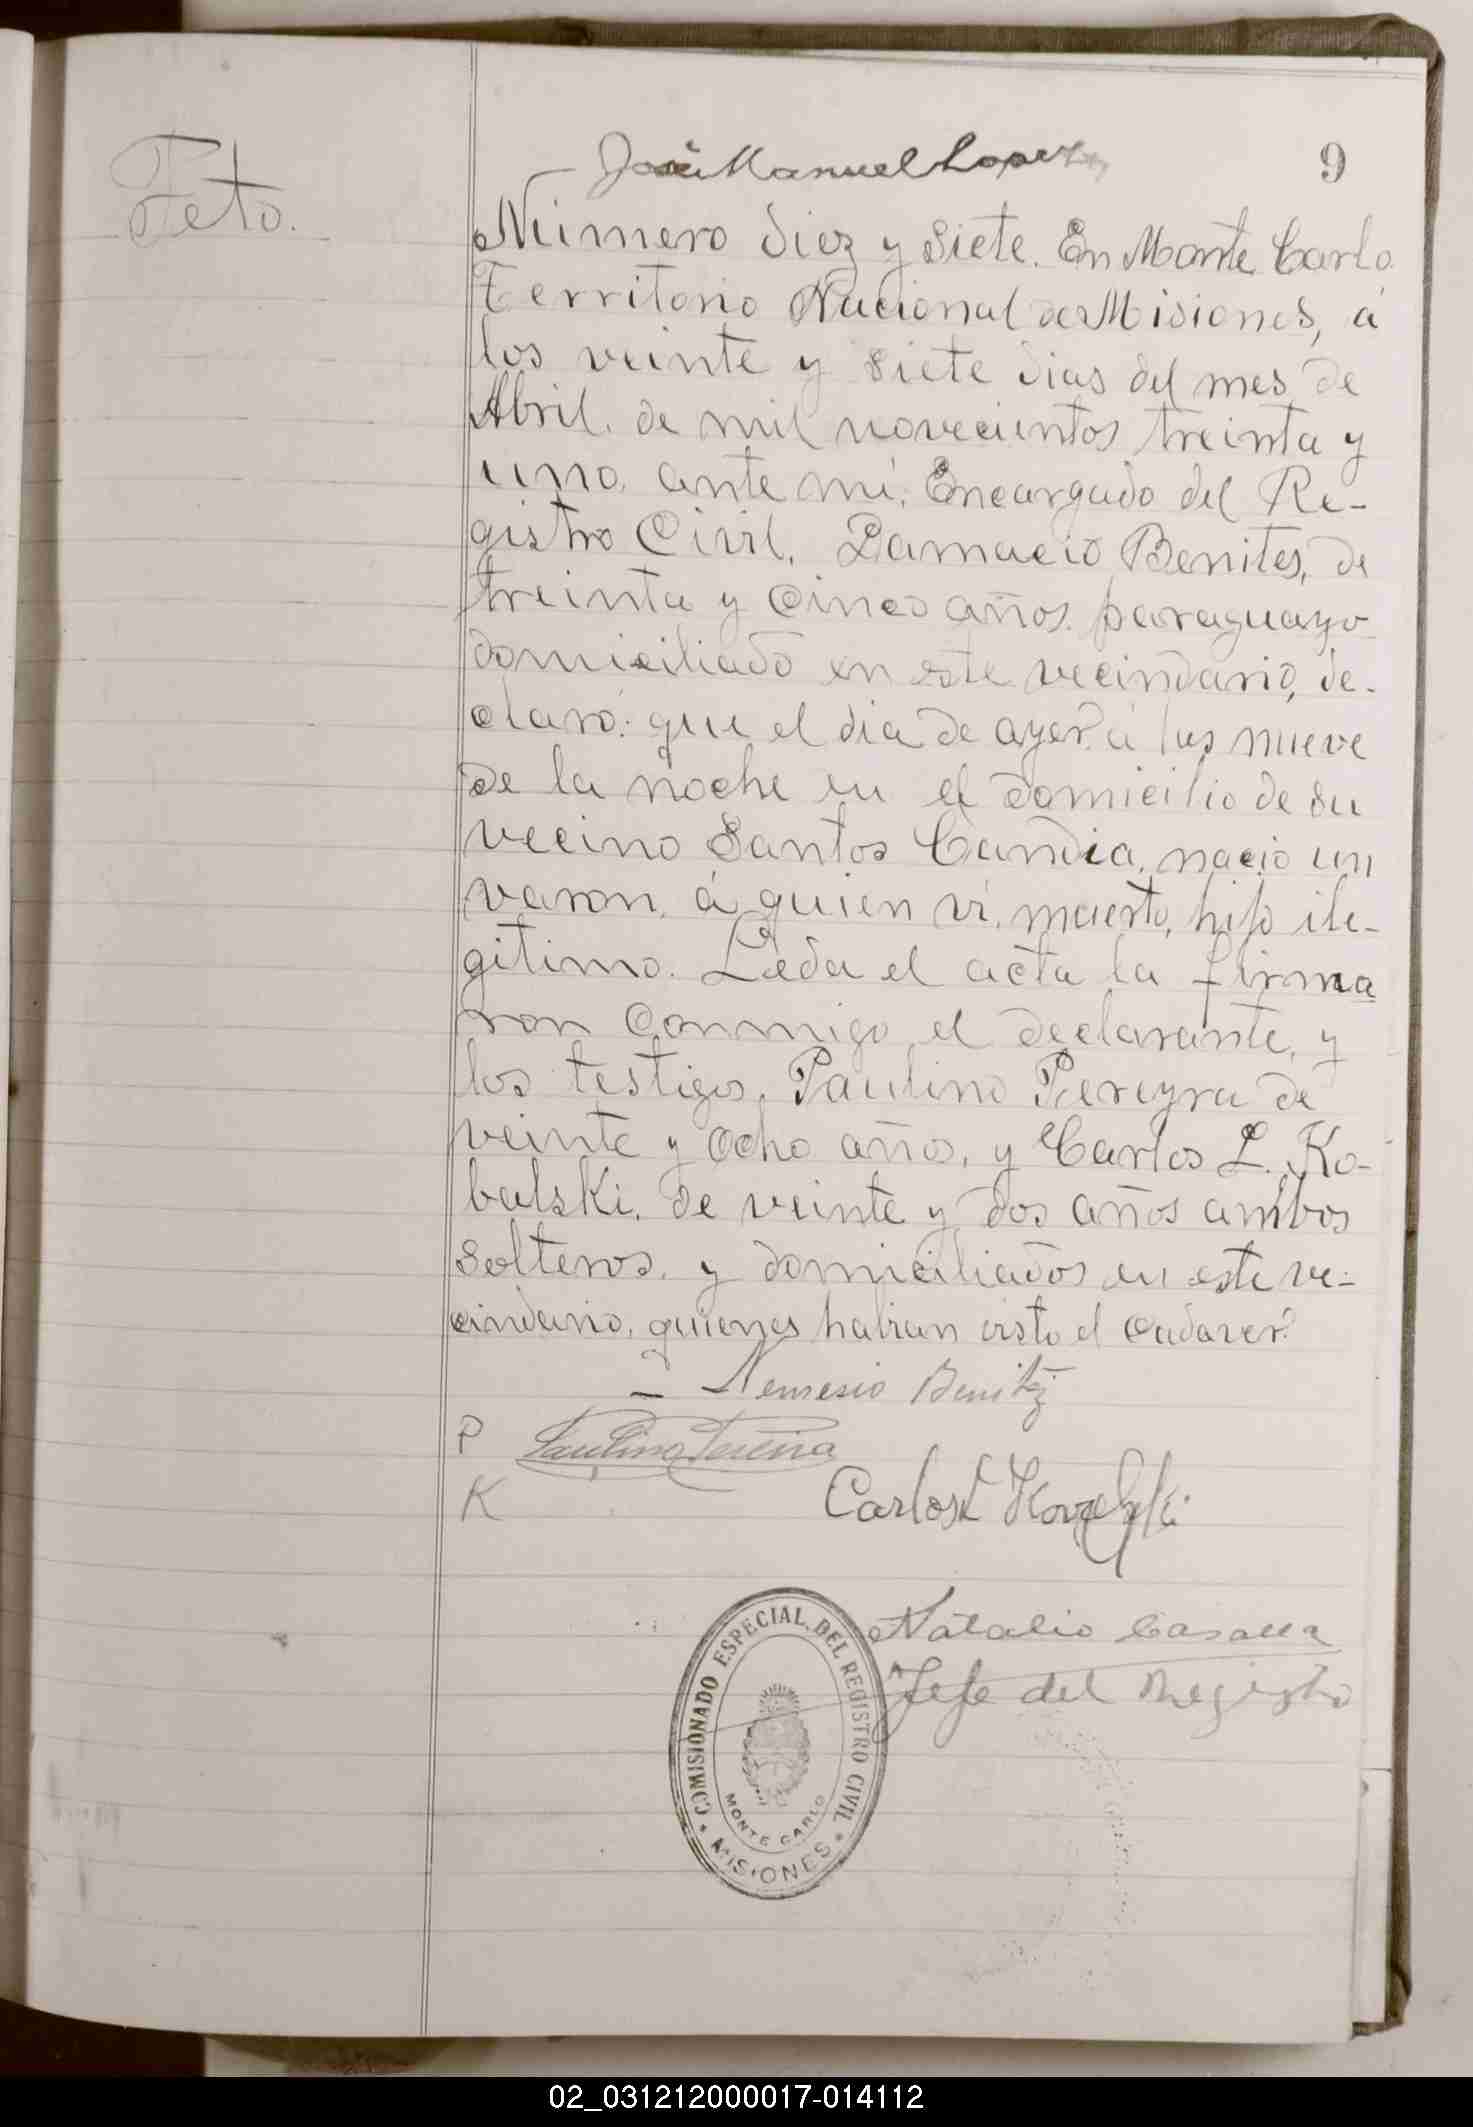 José Manuel Lopez
9
Feto.
Número diez y siete. En Monte Carlo
Territorio Nacional de Misiones, á
los veinte y siete dias del mes de
Abril. de mil novecientos treinta y
uno. ante mi, Encargado del Re-
gistro Civil, Damacio Benites, de
treinta y cinco años. paraguayo
domiciliado en este vecindario, de-
claró: que el dia de ayer á las nueve
de la noche en el domicilio de su
vecino Santos Candia, nacio un
varon, á quien vi, muerto, hijo ile-
gitimo. Leda el acta la firma
ron conmigo el declarante, y
los testigos, Paulino Pereyra de
veinte y ocho años, y Carlos L. Ko-
balski, de veinte y dos años ambos
solteros, y domiciliados en este ve-
cindario, quienes habian visto el cadaver.
Nemesio Benitez
P Paulino Pereira
K Carlos L Kovalski
Natalio Casaua
Jefe del Registro
COMISIONADO ESPECIAL DEL REGISTRO CIVIL
MONTE CARLO
MISIONES
02_031212000017-014112